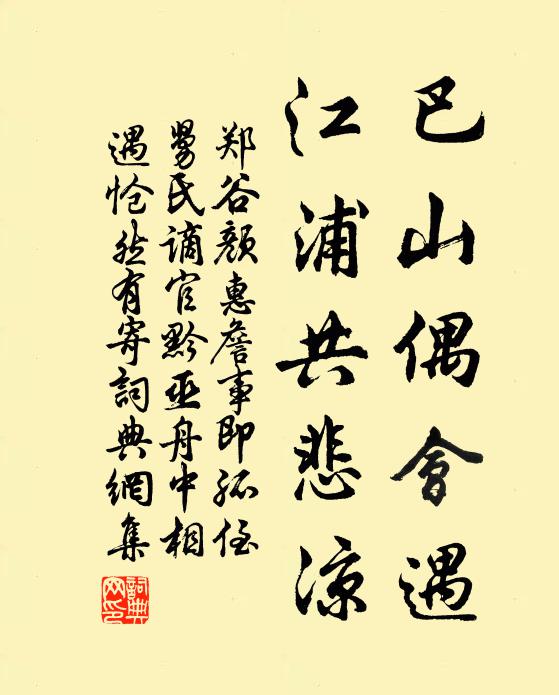 巴山偶會遇
江浦共悲涼
郑谷颜惠詹事即孤侄
舅氏谪官黔巫舟中相
遇怆然有寄詞典網集
詞典
网印